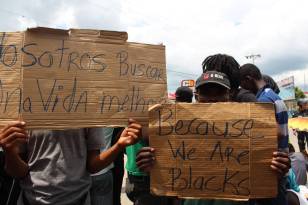 Nosotros Buscar
una VIDA methor
Because
We Are
Blacks